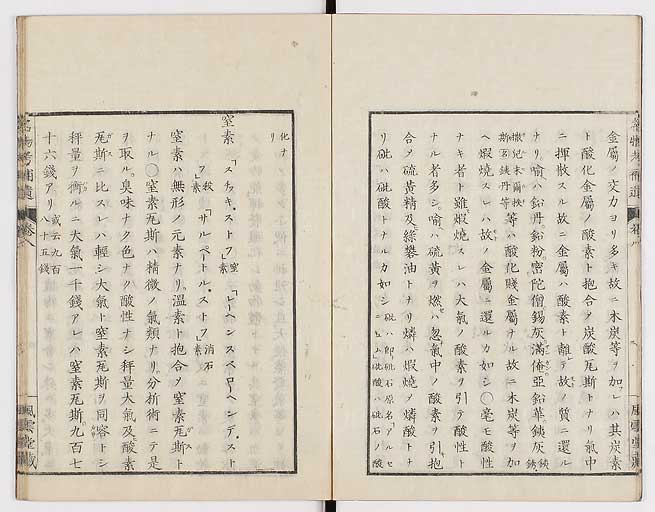 金屬ノ交力ヨリ多キ故ニ木炭等ヲ加フレハ其炭素
ト酸化金屬ノ酸素ト抱合メ炭酸瓦斯トナリ氣中
ニ揮散スル故ニ金屬ハ酸素ト離レテ故ノ質ニ還ル
ナリ喩ハ鉛丹鉛粉密陀僧錫灰滿俺亞鉛華銕灰
等ハ酸化賤金屬ナル故ニ木炭等ヲ加
ヘ煆燒スレハ故ノ金屬ニ還ルカ如シ〇毫モ酸性
ナキ者ト雖煆燒スレハ大氣ノ酸素ヲ引テ酸性ト
ナル者多シ喩ハ硫黄ヲ燃ハ忽氣中ノ酸素ヲ引抱
合メ硫黄精及綠礬油トナリ燐ハ煆燒メ燐酸トナ
リ砒ハ砒酸トナルカ如シ
化ナ
リ
窒素
窒素ハ無形ノ元素ナリ溫素ト抱合メ窒素瓦斯ト
ナル〇窒素瓦斯ハ精微ノ氣類ナリ分析術ニテ是
ヲ取ル臭味ナク色ナク酸性ナシ秤量大氣及酸素
瓦斯ニ比スレハ輕シ大氣ト窒素瓦斯ヲ同容トシ
秤量ヲ衡ルニ大氣一千錢アレハ窒素瓦斯九百七
十六錢アリ或云九百八十五錢
名物考補遺
卷八
風雲堂藏